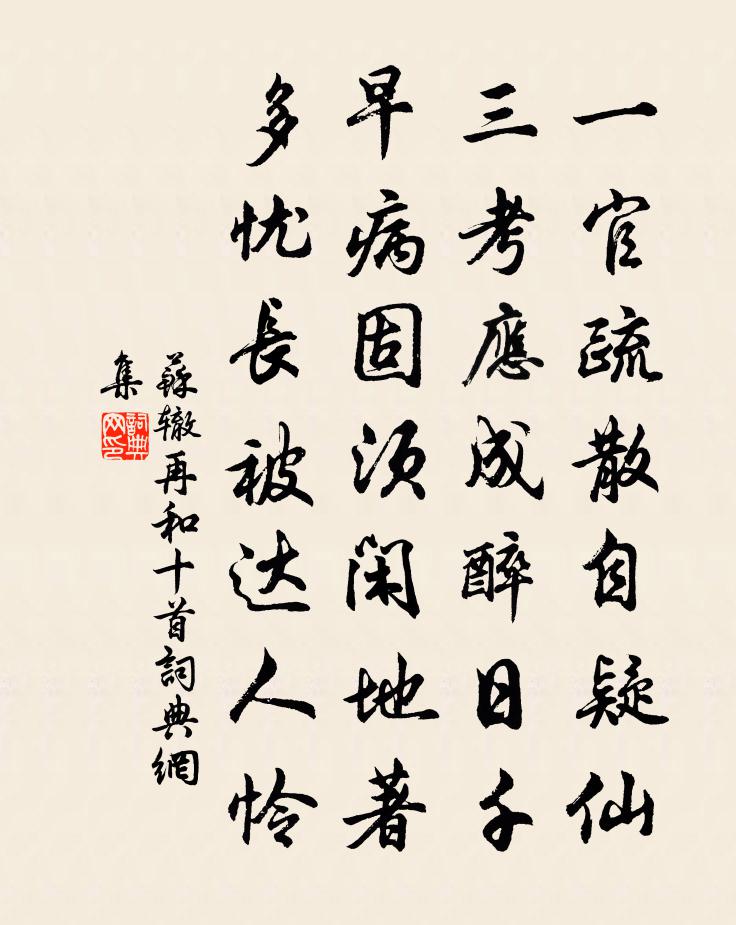 一官疏散自疑仙
三考應成醉日千
早病固须閑地著
多忧長被达人怜
蘇辙再和十首詞典網
集
詞典
网印